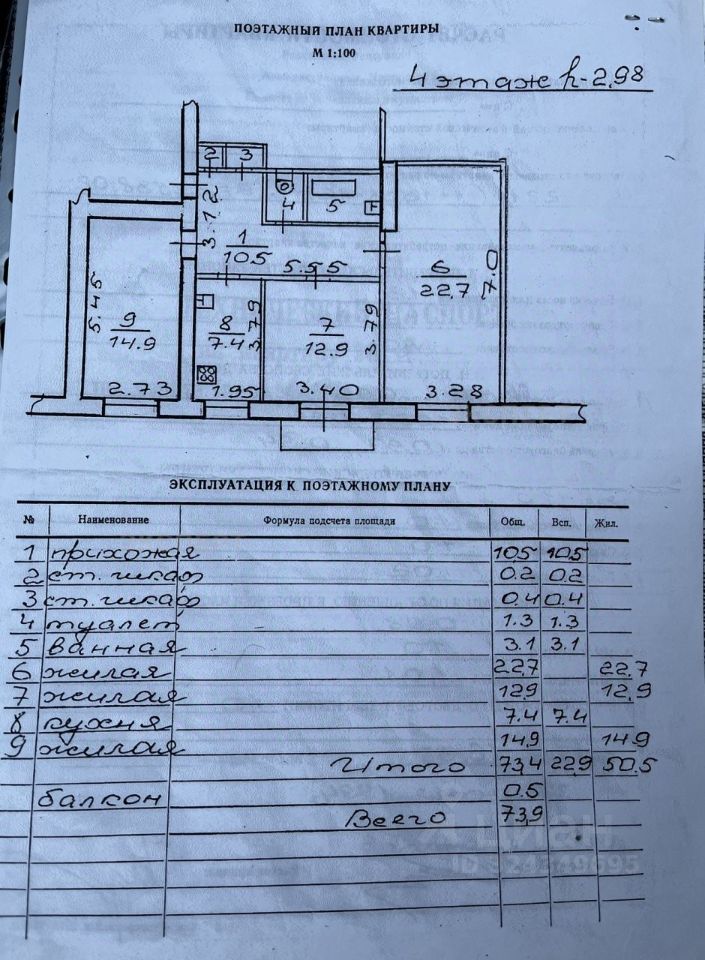 ПОЭТАЖНЫЙ ПЛАН КВАРТИРЫ
М 1:100
4 этаж h-2,98
2 3
3.12
4 5
1
10.5
5.55
6
22.7
7.0
5.45
9
14.9
8
7.4
3.79
7
12.9
3.79
2.73
1.95
3.40
3.28
ЭКСПЛУАТАЦИЯ К ПОЭТАЖНОМУ ПЛАНУ
№ Наименование Формула подсчета площади Общ. Всп. Жил.
1 прихожая 10.5 10.5
2 ст. шкаф 0.2 0.2
3 ст. шкаф 0.4 0.4
4 туалет 1.3 1.3
5 ванная 3.1 3.1
6 жилая 22.7 22.7
7 жилая 12.9 12.9
8 кухня 7.4 7.4
9 жилая 14.9 14.9
Итого 73,4 22.9 50.5
балкон 0.5
Всего 73,9
циан